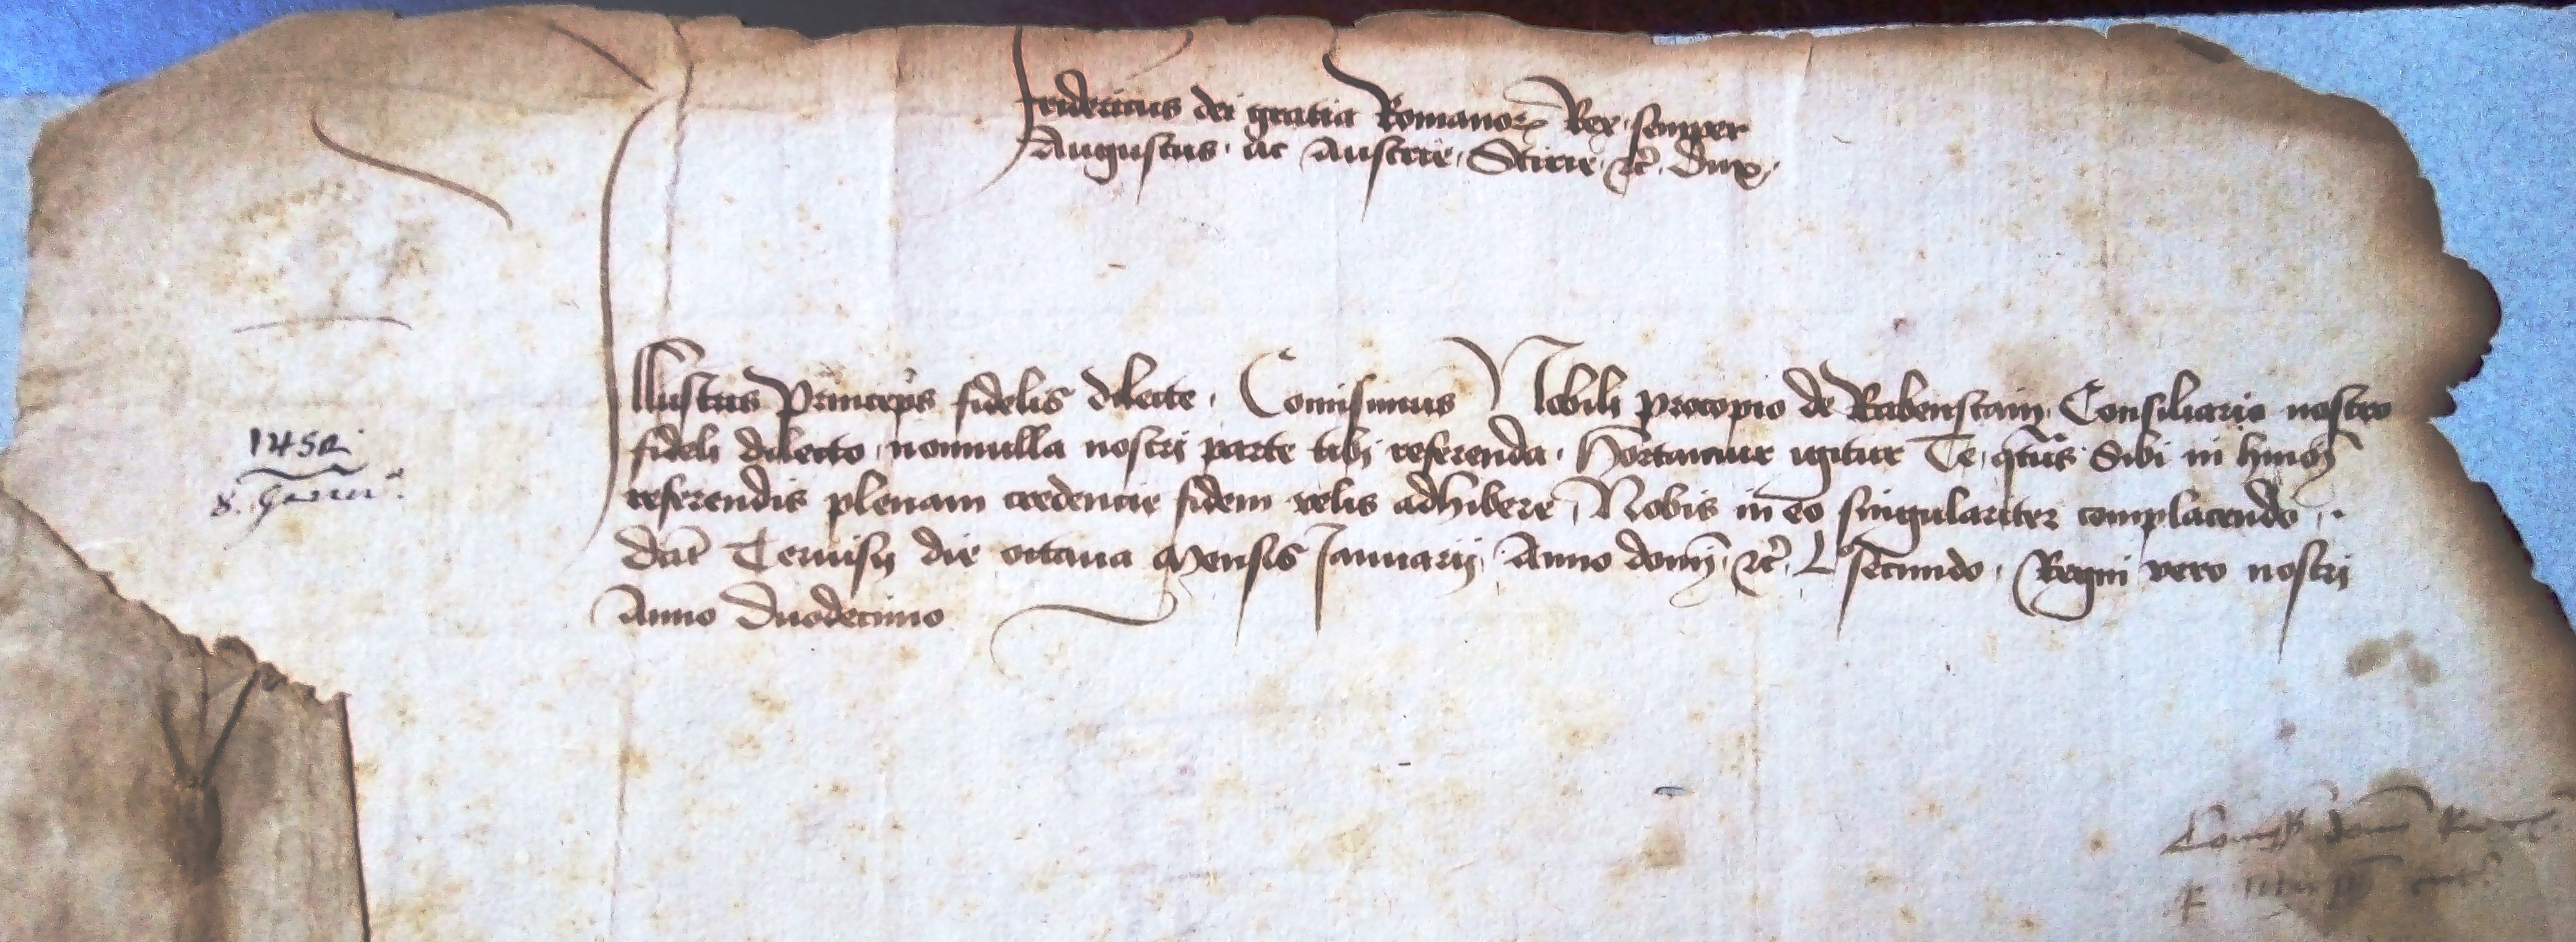 Fridericus dei gratia Romanorꝝ Rex semper
Augustus ac Austrie Stirie ⁊c̃ Dux
Illustris Princeps fidelis dilecte Comisimus Nobili procopio de Rabenstain Consiliario nostro
fideli dilecto nonnulla nostri parte tibi referenda Hortamur igitur Te qt̃us Sibi in hmõi
referendis plenam credencie fidem velis adhibere Nobis in eo singulariter complacendo
Dat̃ Teruisij die octaua Mensis Januarij Anno domĩ ⁊c̃ Lᵒ secundo Regni vero nostri
Anno Duodecimo
1452
8. Januar